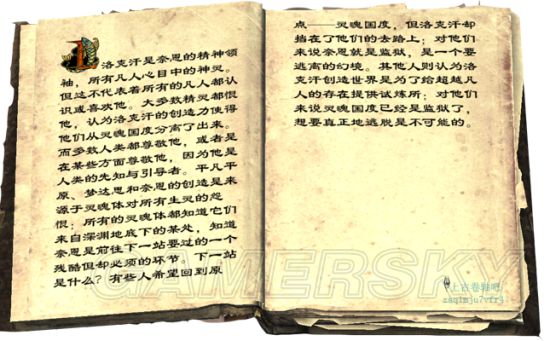 洛克汗是奈恩的精神领
袖，所有凡人心目中的神灵。
但这不代表着所有的凡人都认
识或喜欢他。大多数精灵都恨
他，认为洛克汗的创造力使得
他们从灵魂国度分离了出来。
而多数人类都尊敬他，或者是
在某些方面尊敬他，因为他是
人类的先知与引导者。平凡平
原、梦达思和奈恩的创造是来
源于灵魂体对所有生灵的怨
恨；所有的灵魂体都知道它们
来自深渊地底下的某处，知道
奈恩是前往下一站要过的一个
残酷但却必须的环节，下一站
是什么？有些人希望回到原
点——灵魂国度，但洛克汗却
挡在了他们的去路上；对他们
来说奈恩就是监狱，是一个要
逃离的幻境。其他人则认为洛
克汗创造世界是为了给超越凡
人的存在提供试炼所；对他们
来说灵魂国度已经是监狱了，
想要真正地逃脱是不可能的。
GAMERSKY
上古卷轴吧
zaqimju7vfr4